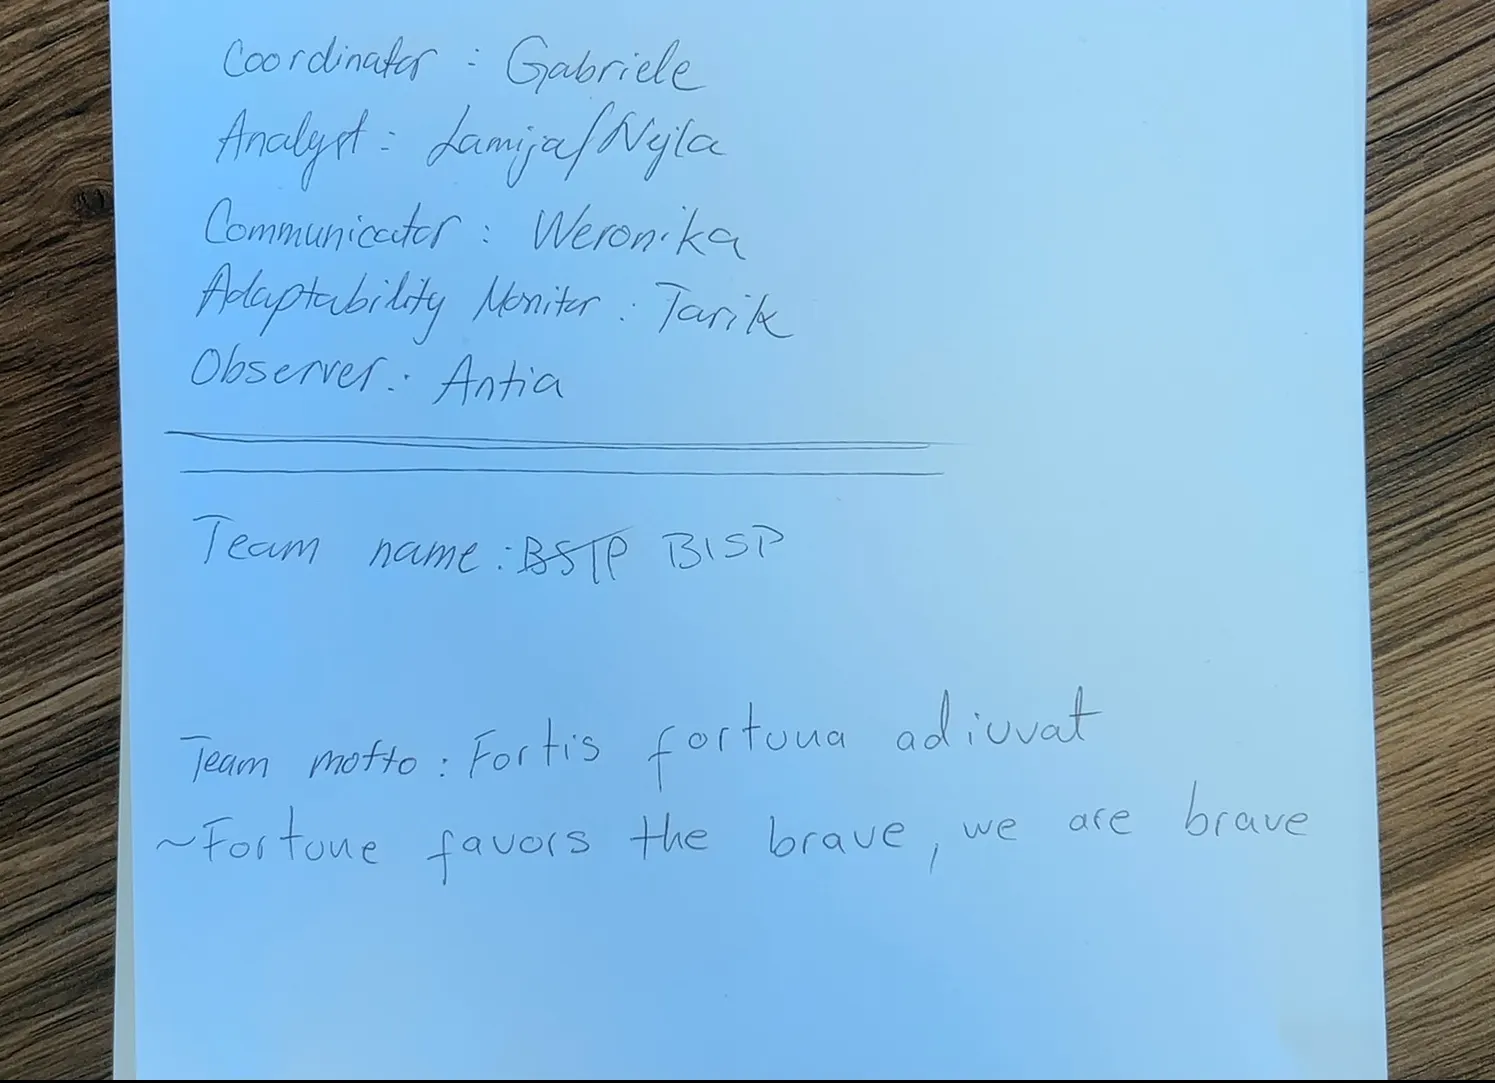 Coordinator : Gabriele
Analyst : Lamija/Nyla
Communicator : Weronika
Adaptability Monitor : Tarik
Observer : Antia
Team name : BSTP BISP
Team motto : Fortis fortuna adiuvat
~Fortune favors the brave, we are brave